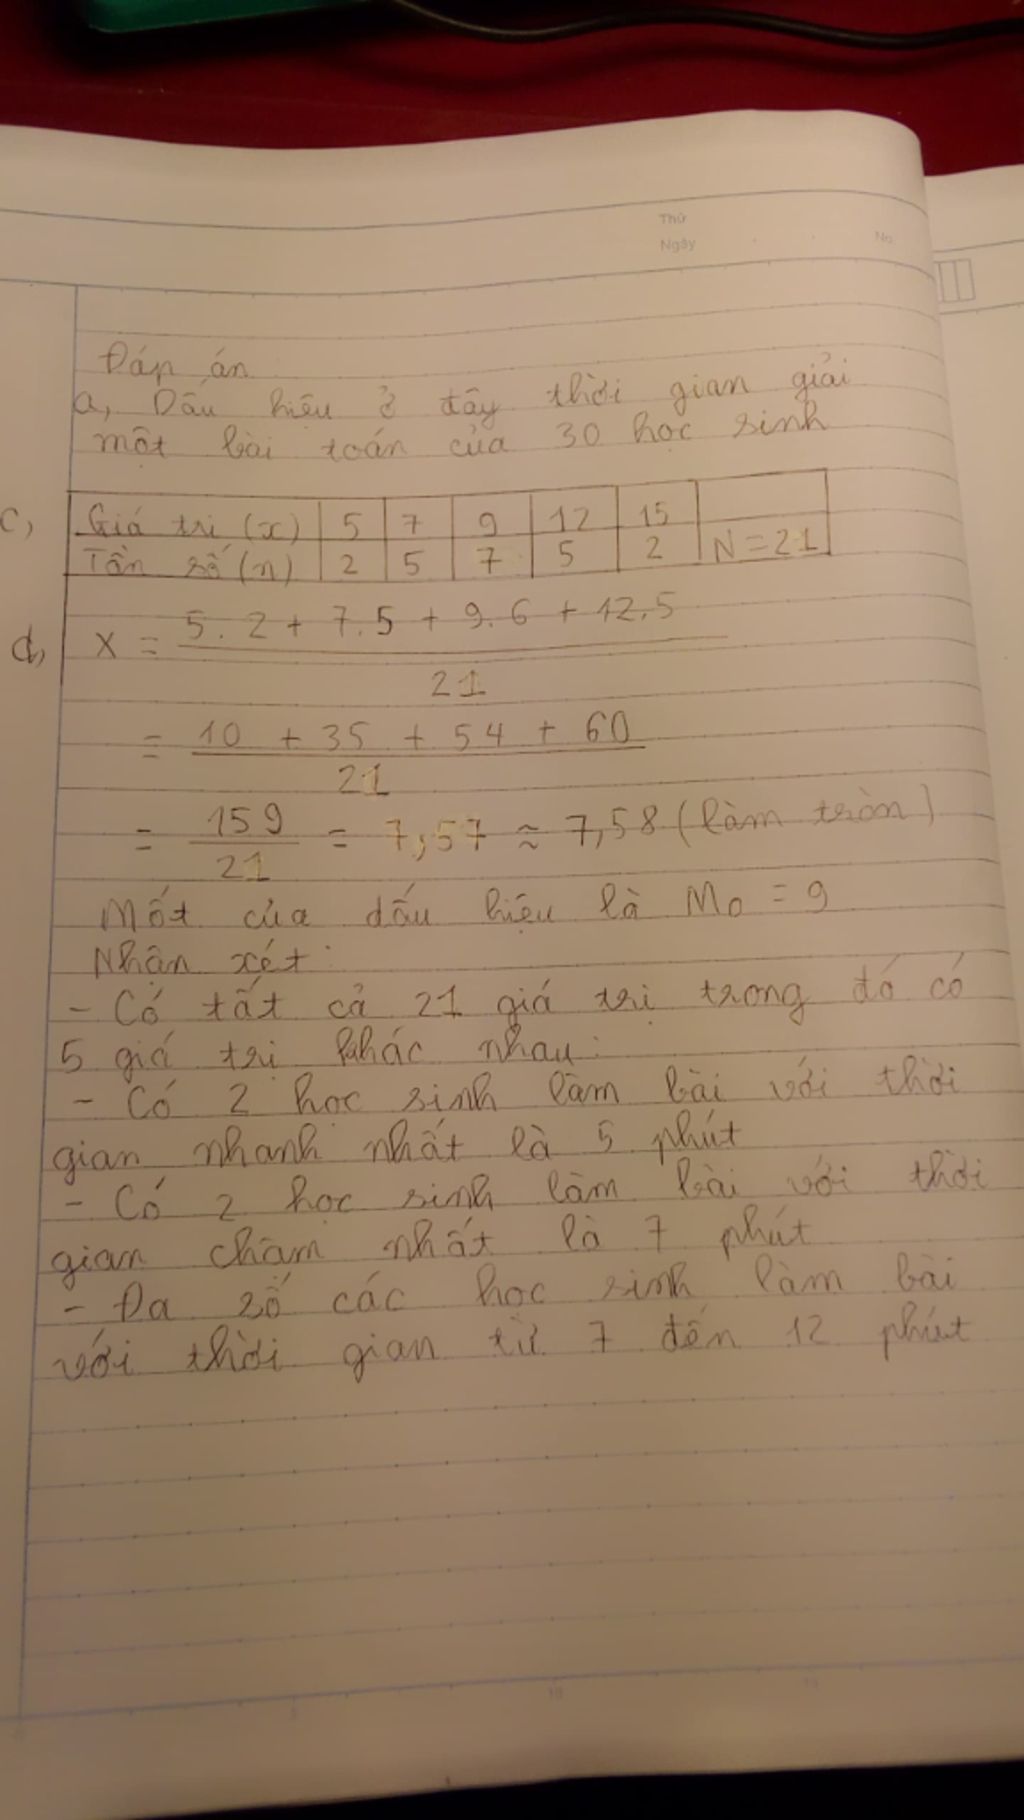 Thứ
Ngày No
Đáp án
a, Dấu hiệu ở đây thời gian giải
một bài toán của 30 học sinh
c, Giá trị (x) 5 7 9 12 15
Tần số (n) 2 5 7 5 2 N = 21
d, X = 5.2 + 7.5 + 9.6 + 12.5
21
= 10 + 35 + 54 + 60
21
= 159 = 7,57 ≈ 7,58 (làm tròn)
21
Mốt của dấu hiệu là Mo = 9
Nhận xét:
- Có tất cả 21 giá trị trong đó có
5 giá trị khác nhau:
- Có 2 học sinh làm bài với thời
gian nhanh nhất là 5 phút
- Có 2 học sinh làm bài với thời
gian chậm nhất là 7 phút
- Đa số các học sinh làm bài
với thời gian từ 7 đến 12 phút